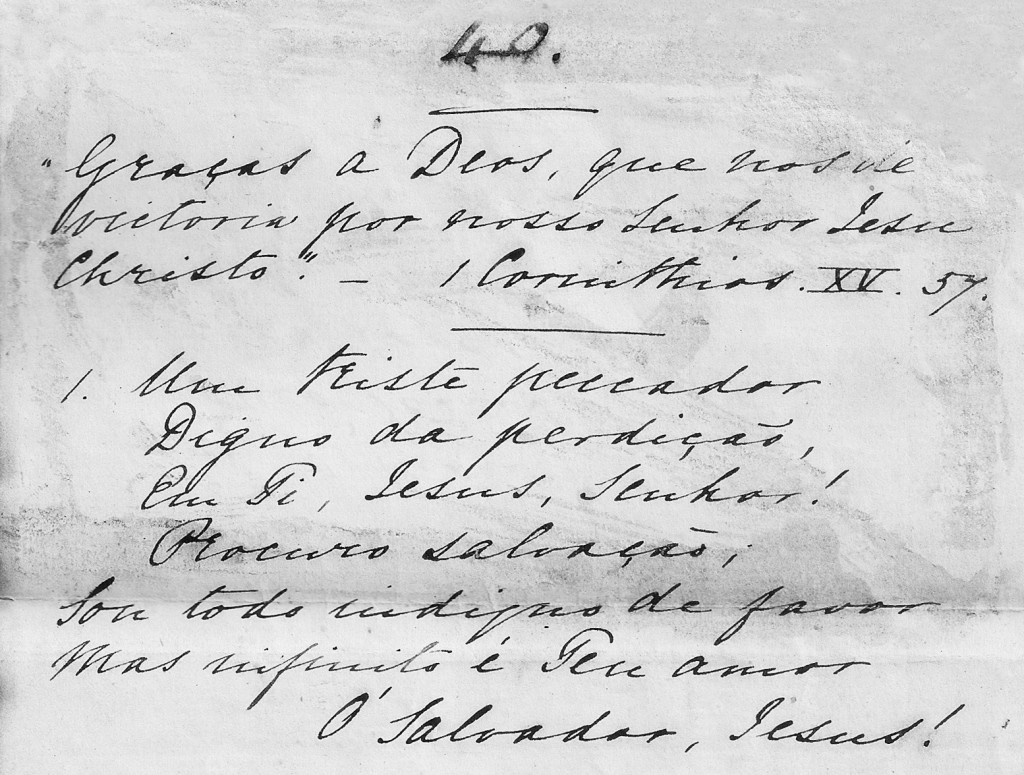 40.
"Graças a Deos, que nos dê
victoria por nosso Senhor Jesu
Christo". — 1 Corinthios. XV. 57.
1. Um triste peccador
Digno da perdição,
Em Ti, Jesus, Senhor!
Procuro salvação;
Sou todo indigno de favor
Mas infinito é Teu amor
Ó Salvador, Jesus!